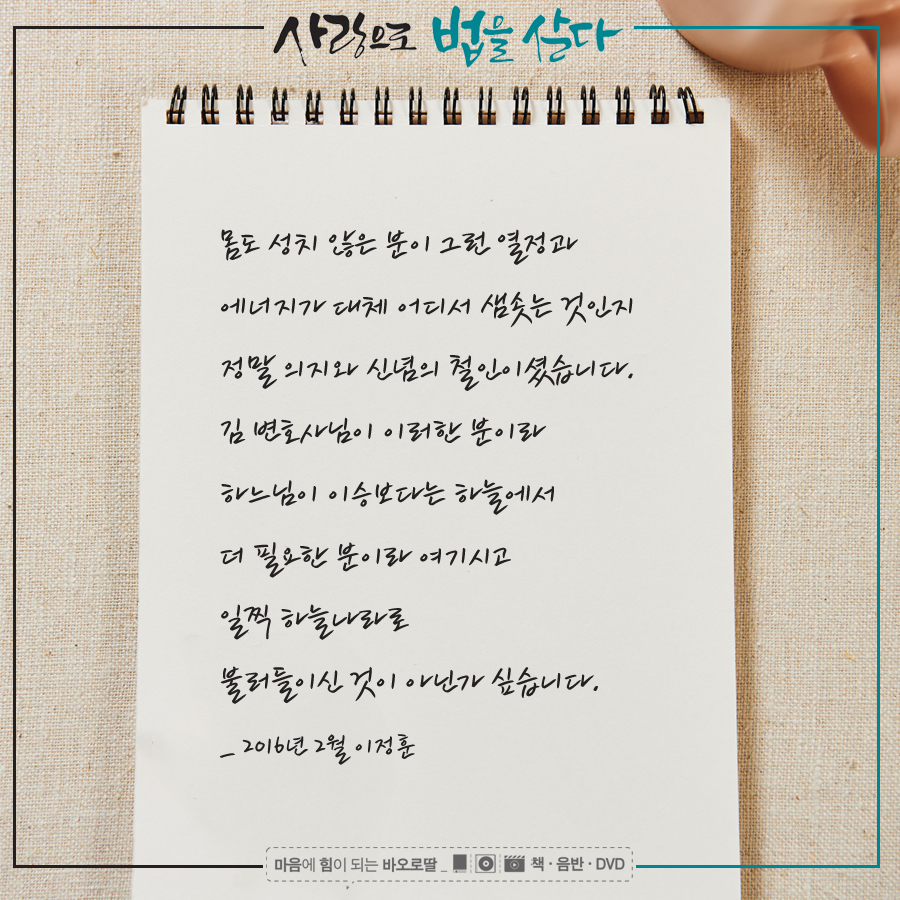 사랑으로 법을 살다
몸도 성치 않은 분이 그런 열정과
에너지가 대체 어디서 샘솟는 것인지
정말 의지와 신념의 철인이셨습니다.
김 변호사님이 이러한 분이라
하느님이 이승보다는 하늘에서
더 필요한 분이라 여기시고
일찍 하늘나라로
불러들이신 것이 아닌가 싶습니다.
_ 2016년 2월 이정훈
마음에 힘이 되는 바오로딸 _ 책·음반·DVD